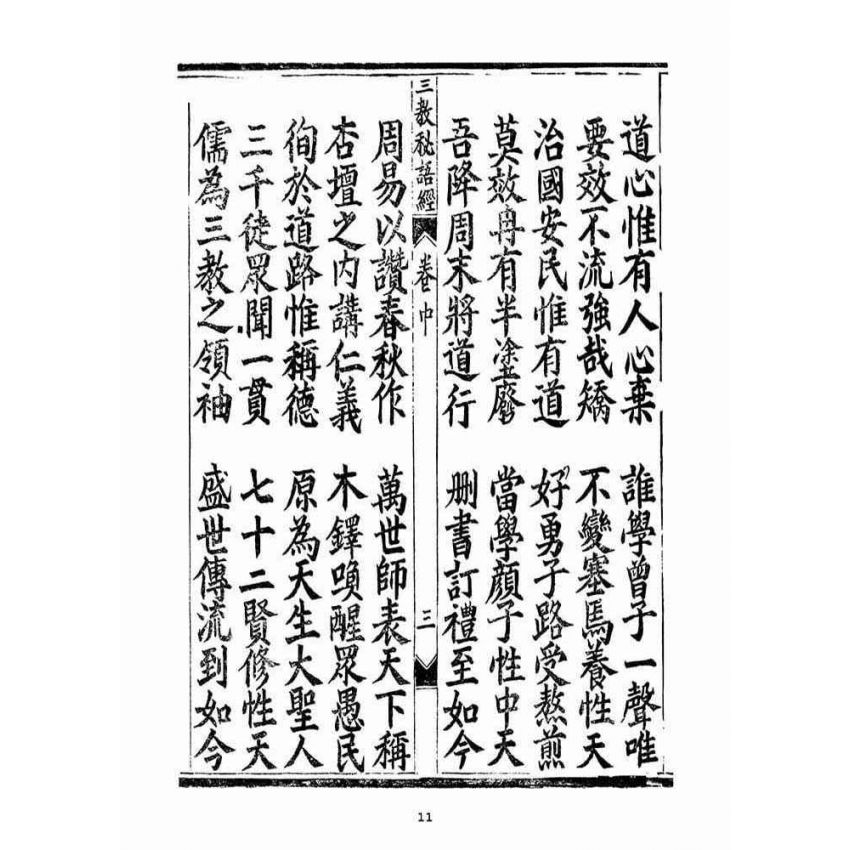 道心惟有人心棄　誰學曾子一聲唯
要效不流強哉矯　不變塞焉養性天
治國安民惟有道　好勇子路受熬煎
莫效冉有半塗廢　當學顏子性中天
吾降周末將道行　刪書訂禮至如今
三教秘語經　卷中　三
周易以讚春秋作　萬世師表天下稱
杏壇之內講仁義　木鐸喚醒眾愚民
徇於道路惟稱德　原為天生大聖人
三千徒眾聞一貫　七十二賢修性天
儒為三教之領袖　盛世傳流到如今
11